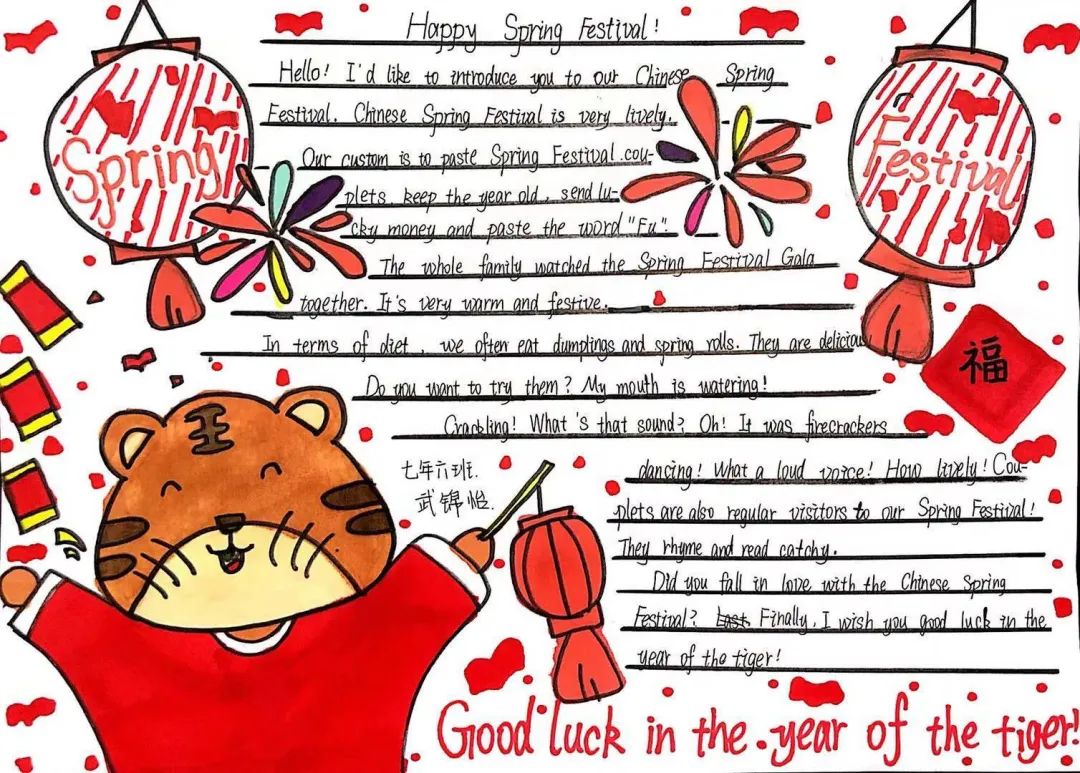 Happy Spring Festival!
Spring
Festival
Hello! I'd like to introduce you to our Chinese Spring
Festival. Chinese Spring Festival is very lively.
Our custom is to paste Spring Festival cou-
plets, keep the year old, send lu-
cky money and paste the word "Fu".
The whole family watched the Spring Festival Gala
together. It's very warm and festive.
In terms of diet, we often eat dumplings and spring rolls. They are delicious
Do you want to try them? My mouth is watering!
Crackling! What's that sound? Oh! It was firecrackers
福
王
七年六班.
武锦怡.
dancing! What a loud voice! How lively! Cou-
plets are also regular visitors to our Spring Festival!
They rhyme and read catchy.
Did you fall in love with the Chinese Spring
Festival? Last Finally, I wish you good luck in the
year of the tiger!
Good luck in the year of the tiger!